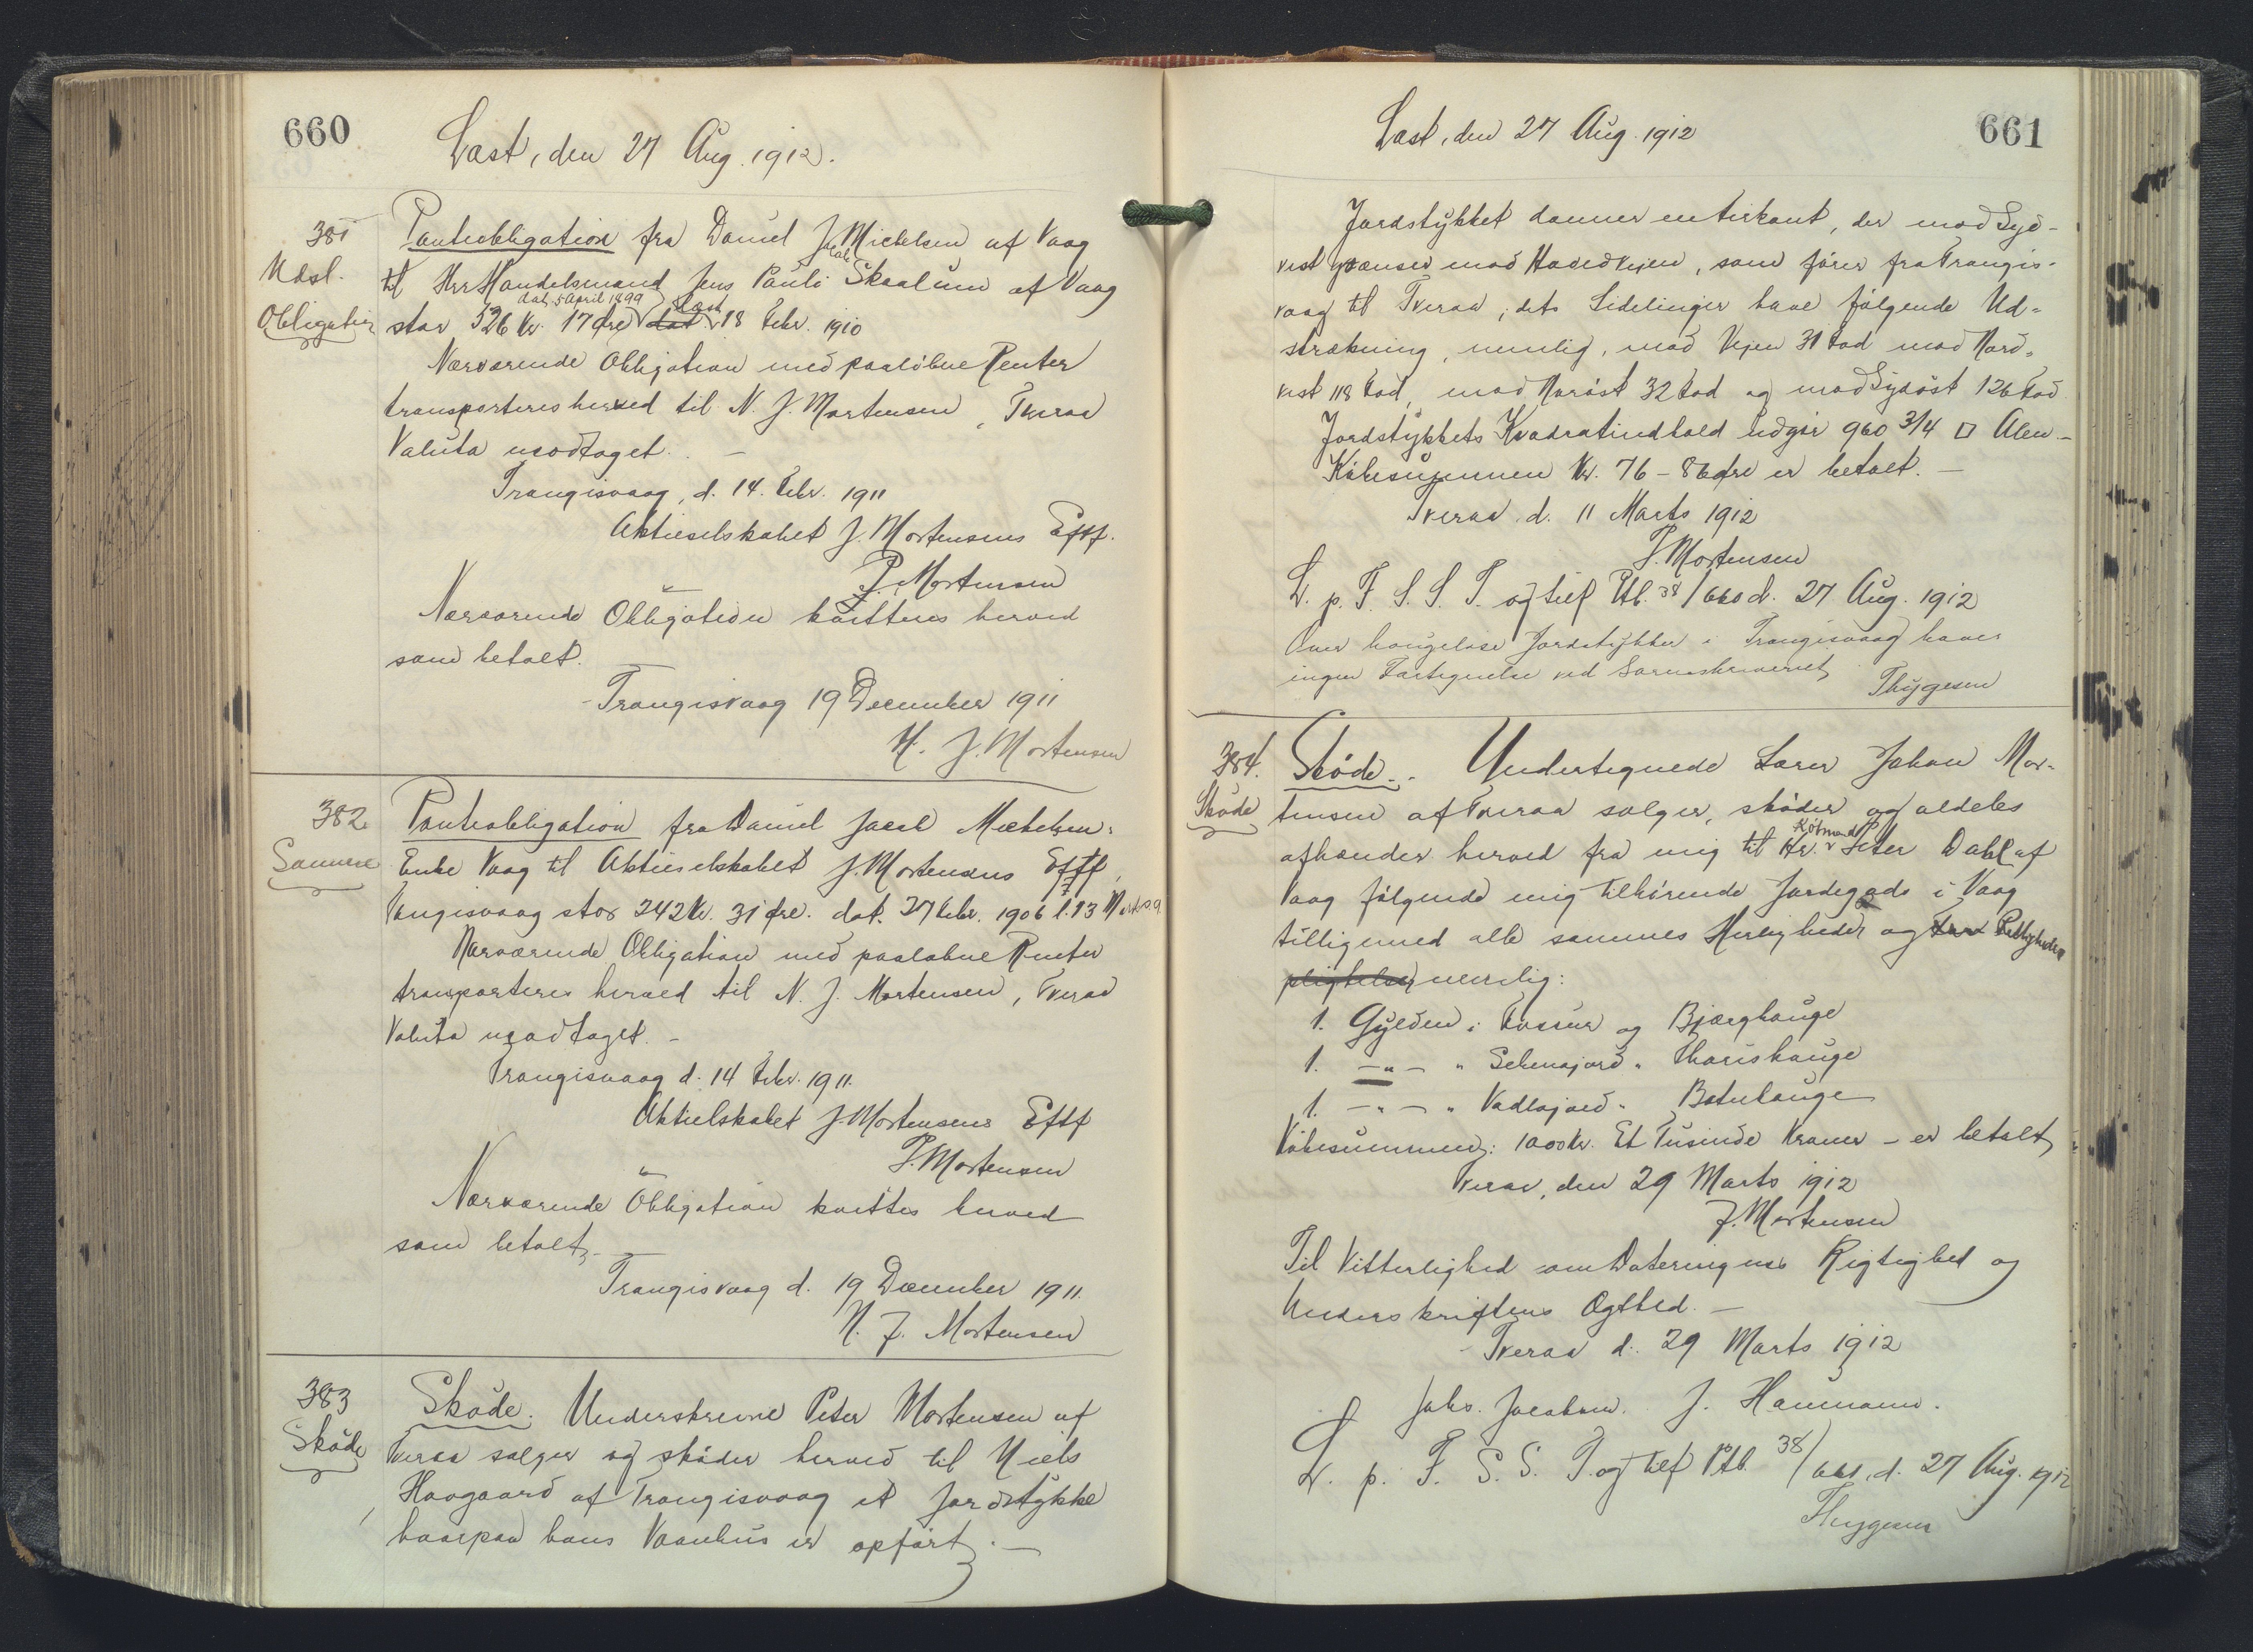 660
Læst, den 27 Aug. 1912.
381
Udsl.
Obligation
Panteobligation fra Daniel Jacob Michelsen af Vaag
til Hrr Handelsmand Jens Pauli Skaalum af Vaag
dat. 5 April 1899 Læst
stor 526 Kr. 17 Øre dat. 18 Febr. 1910
Nærværende Obligation med paaløbne Renter
transporteres herved til N. J. Mortensen, Tveraa
Valuta modtaget. –
Trangisvaag, d. 14. Febr. 1911
Aktieselskabet J. Mortensens Eftf.
P. Mortensen
Nærværende Obligation kvitteres herved
som betalt.
Trangisvaag 19 December 1911
N. J. Mortensen
382
Samme
Panteobligation fra Daniel Jacob Michelsens
Enke Vaag til Aktieselskabet J. Mortensens Eftf,
Trangisvaag stor 242 Kr. 31 Øre. dat. 27 Febr. 1906 l. 13
Nærværende Obligation med paaløbne Renter
transporteres herved til N. J. Mortensen, Tveraa
Valuta modtaget. –
Trangisvaag d. 14 Febr. 1911.
Aktielskabet J. Mortensens Eftf
P. Mortensen
Nærværende Obligation kvittes herved
som betalt. –
Trangisvaag d. 19 December 1911.
N. J. Mortensen
383
Skøde
Skøde. Underskrevne Peter Mortensen af
Tveraa sælger og skøder herved til Niels
Haagaard af Trangisvaag et Jordstykke
hvorpaa hans Vaanhus er opført. –
661
Læst, den 27 Aug. 1912
Jordstykket danner en firkant, der mod Syd-
vest grænser mod Hovedvejen, som fører fra Trangis-
vaag til Tveraa; dets Sidelinjer have følgende Ud-
strækning, nemlig, mod Vejen 31 Fod mod Nord-
vest 118 Fod, mod Norøst 32 Fod og mod Sydøst 126 Fod
Jordstykkets Kvadratindhold udgør 960 3/4 □ Alen –
Købesummen Kr. 76 – 86 Øre er betalt. –
Tveraa d. 11 Marts 1912
P. Mortensen
L. p. F. S. S. T. og tilf Ptb. 38/660 d. 27 Aug. 1912
Over haugeløse Jordstykker i Trangisvaag haves
ingen Fortegnelse ved Sorenskriveriet
Thygesen
384.
Skøde
Skøde. Undertegnede Lærer Johan Mor-
tensen af Tveraa sælger, skøder og aldeles
Købmand
afhænder herved fra mig til Hr. Peter Dahl af
Vaag følgende mig tilhørende Jordegods i Vaag
tilligemed alle sammes Herligheder og For Rettigheder
pligtelser nemlig:
1. Gylden i Fossur og Bjærghauge
1. –"– " Selmajord " Thorishauge
1. –"– " Vadlajord " Botnhauge
Købesummen: 1000 Kr. Et Tusinde Kroner – er betalt
Tveraa, den 29 Marts 1912
J. Mortensen
Til Vitterlighed om Dateringens Rigtighed og
Underskriftens Ægthed. –
Tveraa d. 29 Marts 1912
Johs. Jacobsen. J. Hammann.
L. p. F. S. S. T. og tilf Ptb. 38/661, d. 27 Aug. 1912
Thygesen